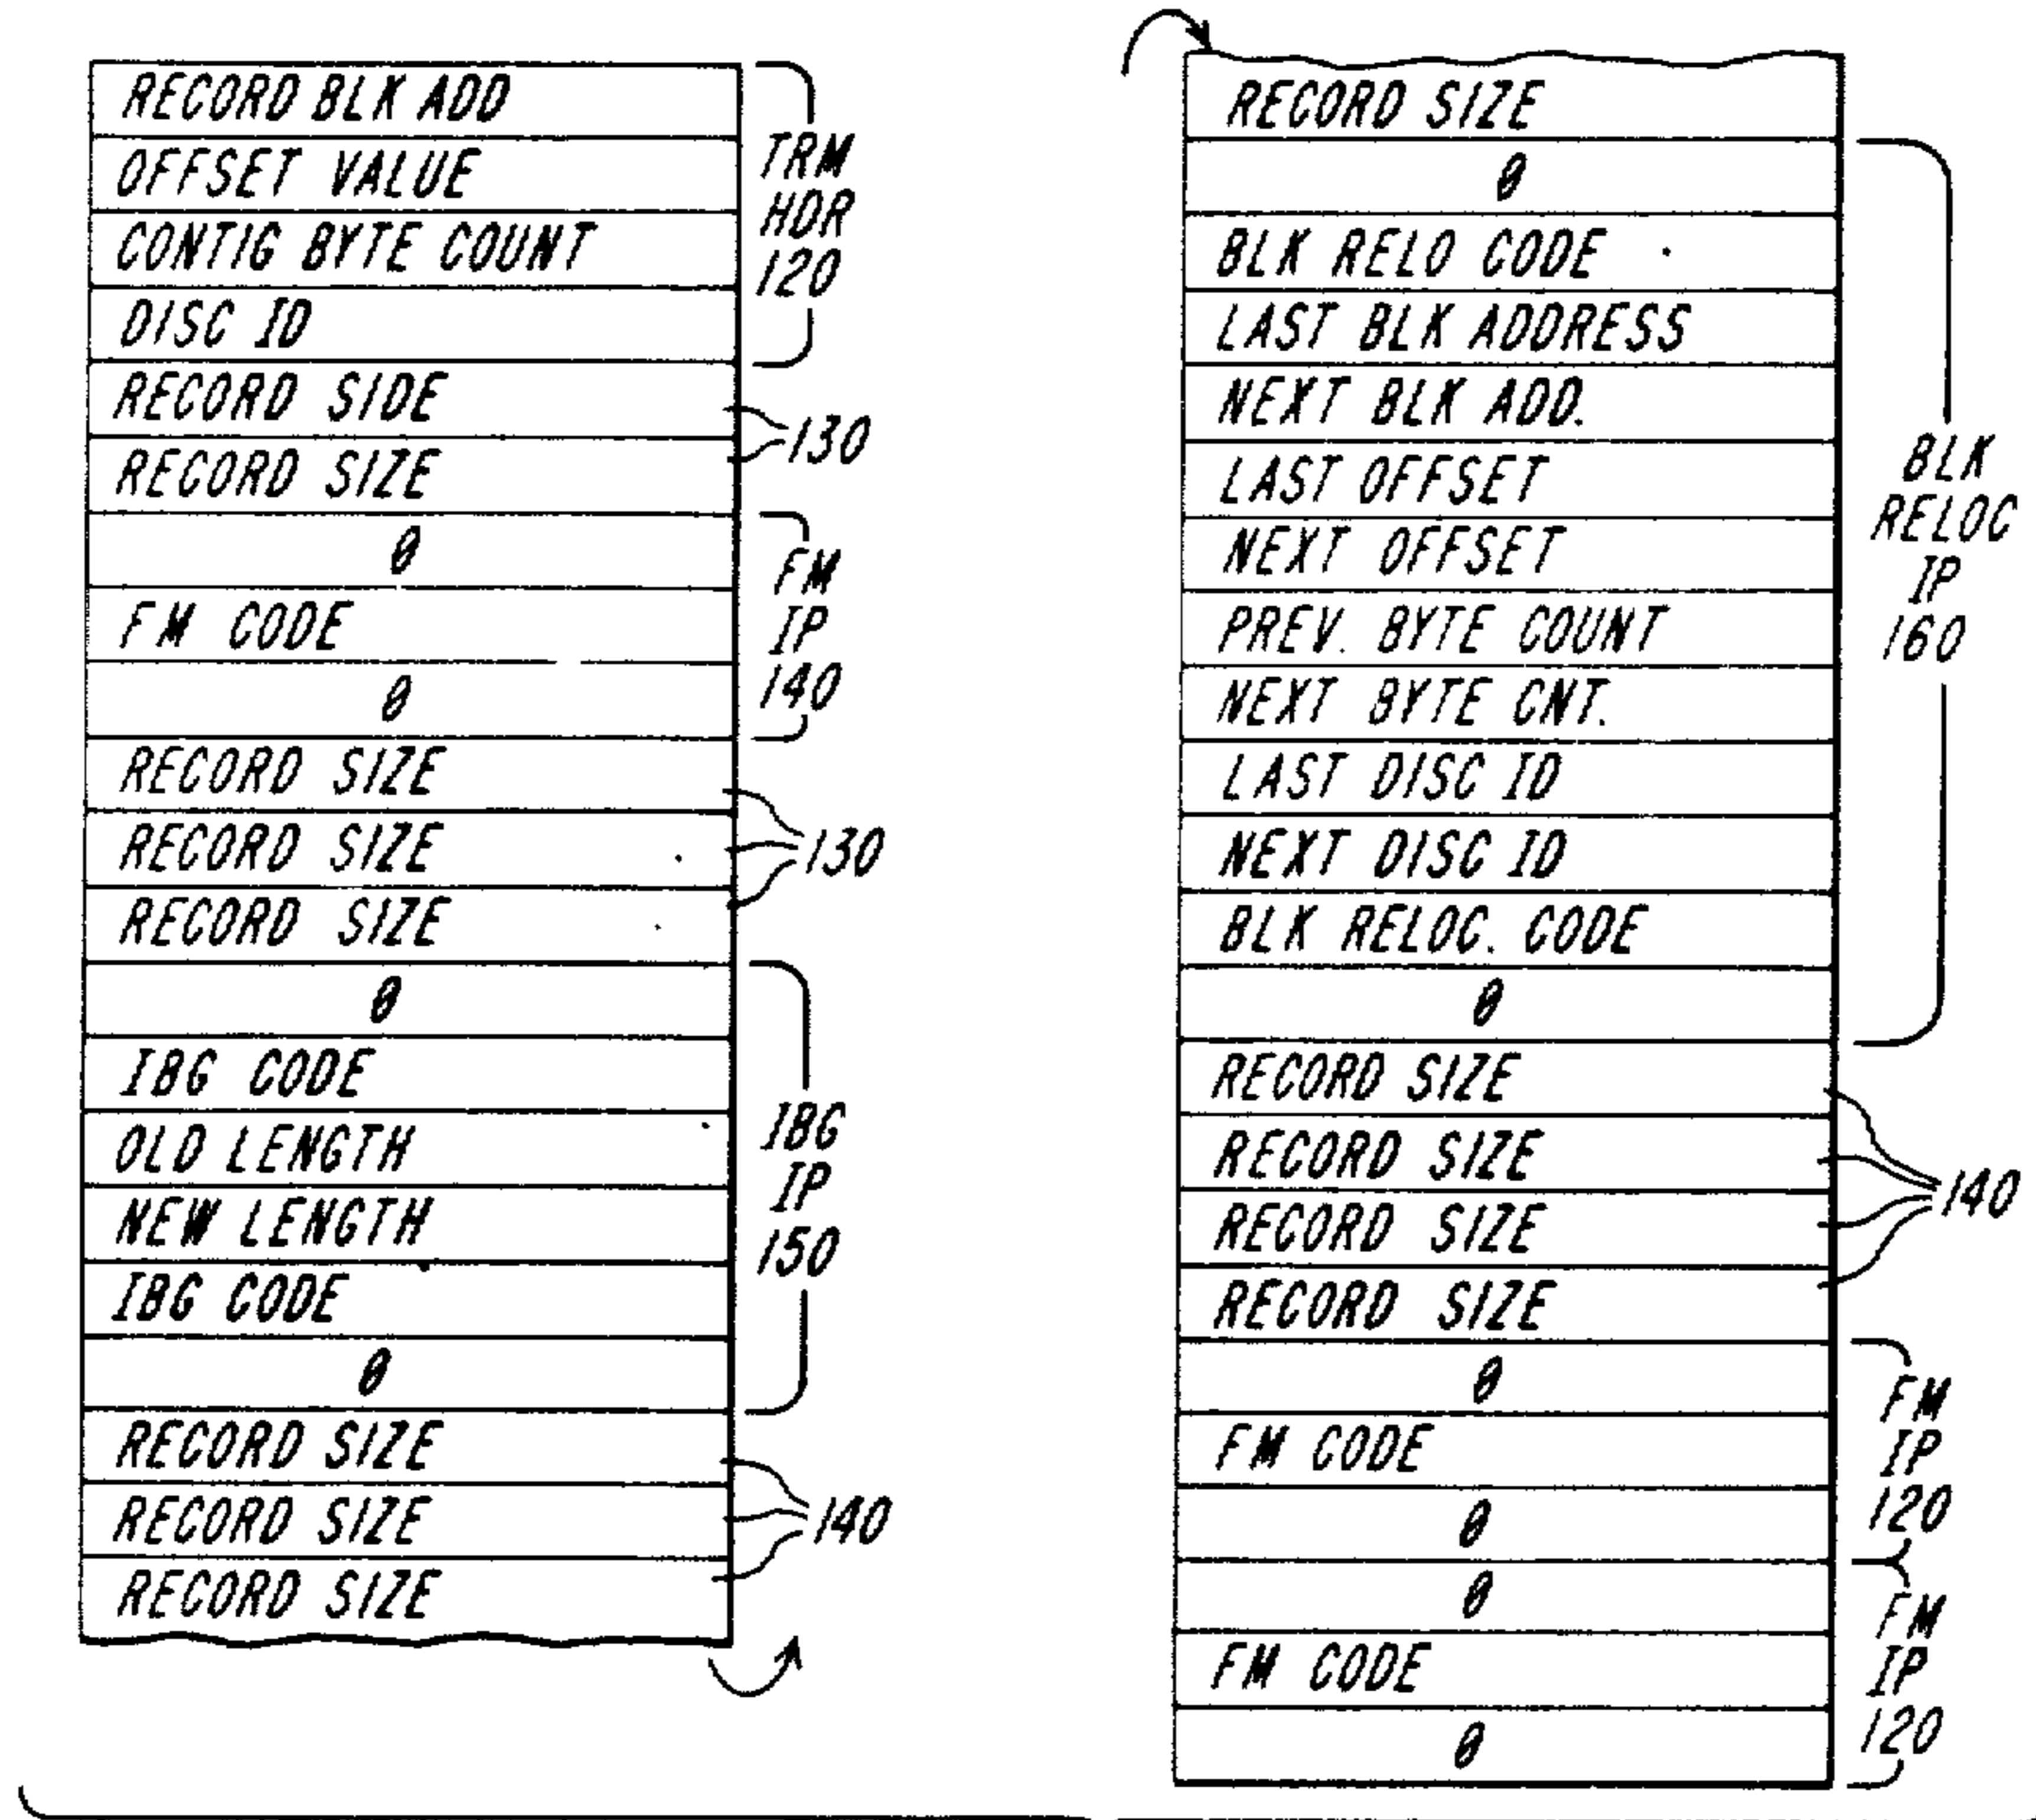 RECORD BLK ADD
OFFSET VALUE
CONTIG BYTE COUNT
DISC ID
TRM
HDR
120
RECORD SIDE
RECORD SIZE
130
0
FM CODE
0
FM
IP
140
RECORD SIZE
RECORD SIZE
RECORD SIZE
130
0
IBG CODE
OLD LENGTH
NEW LENGTH
IBG CODE
0
IBG
IP
150
RECORD SIZE
RECORD SIZE
RECORD SIZE
140
RECORD SIZE
0
BLK RELO CODE
LAST BLK ADDRESS
NEXT BLK ADD.
LAST OFFSET
NEXT OFFSET
PREV. BYTE COUNT
NEXT BYTE CNT.
LAST DISC ID
NEXT DISC ID
BLK RELOC. CODE
0
BLK
RELOC
IP
160
RECORD SIZE
RECORD SIZE
RECORD SIZE
RECORD SIZE
140
0
FM CODE
0
FM
IP
120
0
FM CODE
0
FM
IP
120